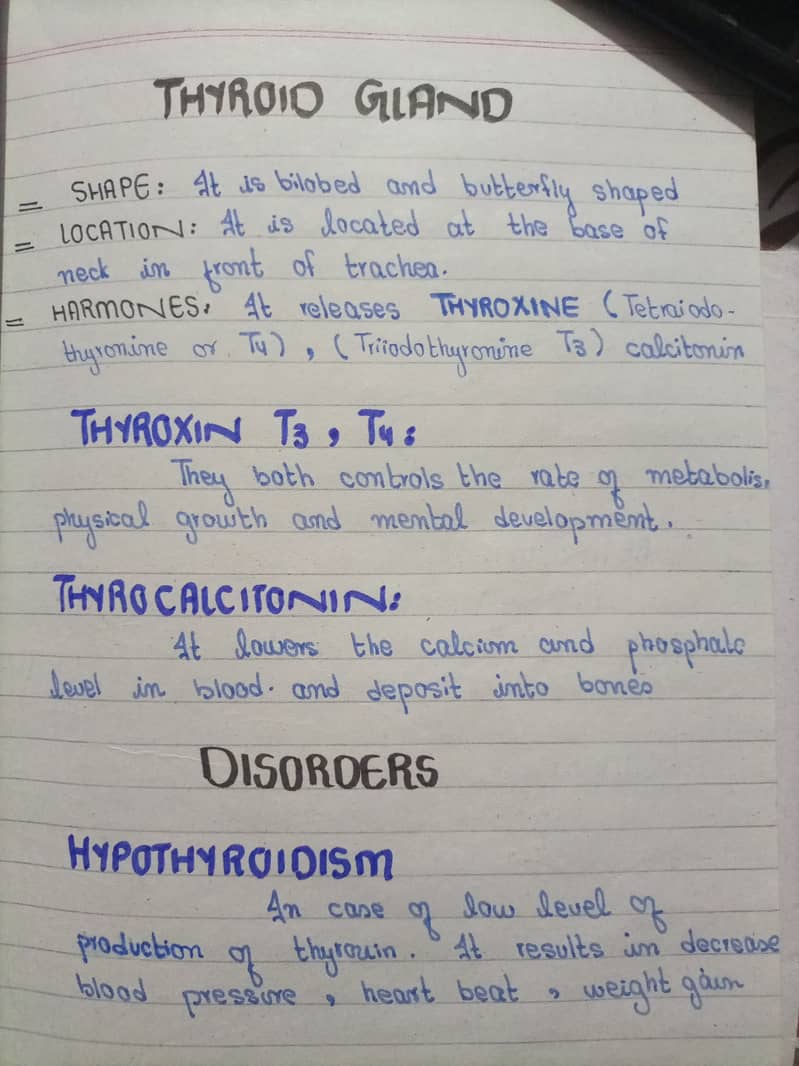 THYROID GLAND
= SHAPE: It is bilobed and butterfly shaped
= LOCATION: It is located at the base of
neck in front of trachea.
= HARMONES: It releases THYROXINE (Tetraiodo-
thyronine or T4), (Triiodothyronine T3) calcitonin
THYROXIN T3, T4:
They both controls the rate of metabolis,
physical growth and mental development.
THYROCALCITONIN:
It lowers the calcium and phosphate
level in blood. and deposit into bones
DISORDERS
HYPOTHYROIDISM
In case of low level of
production of thyroxin. It results in decrease
blood pressure, heart beat, weight gain